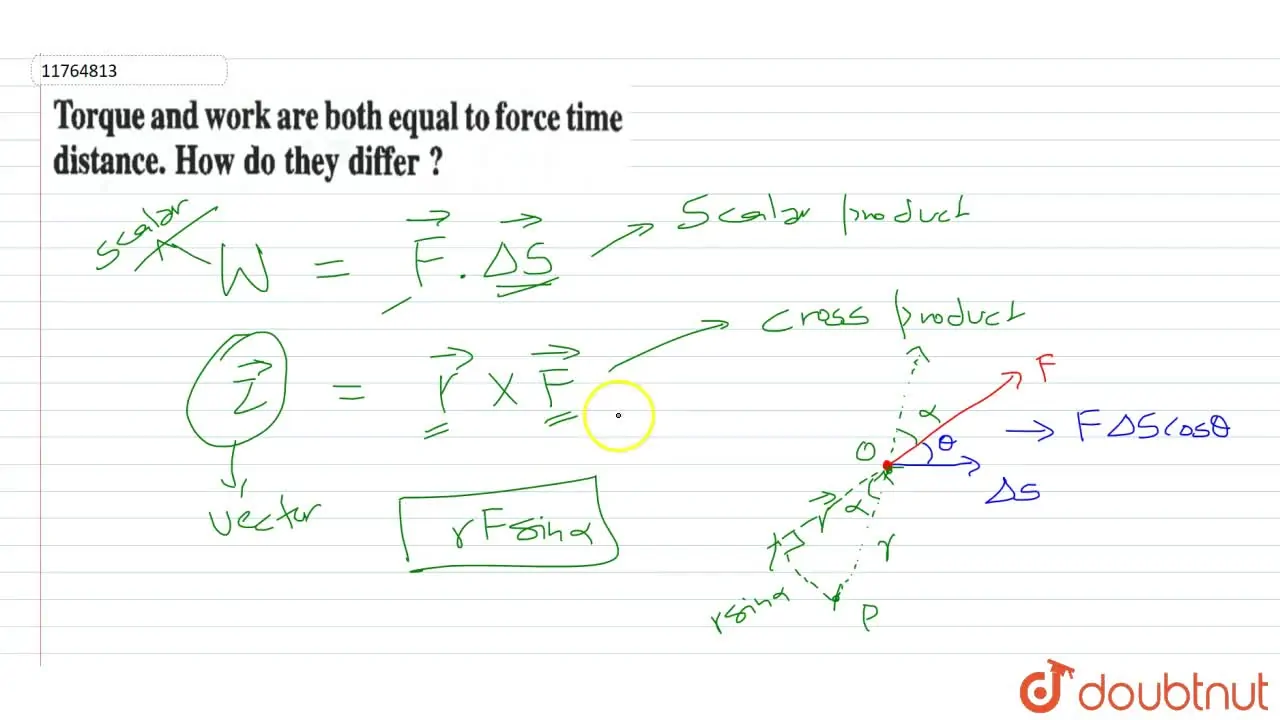 11764813
Torque and work are both equal to force time
distance. How do they differ ?
scalar
W = F . ΔS
Scalar product
τ = r × F
cross product
vector
rF sinα
F
α
θ
O
ΔS
→ FΔS cosθ
r
α
r
r sinα
P
doubtnut